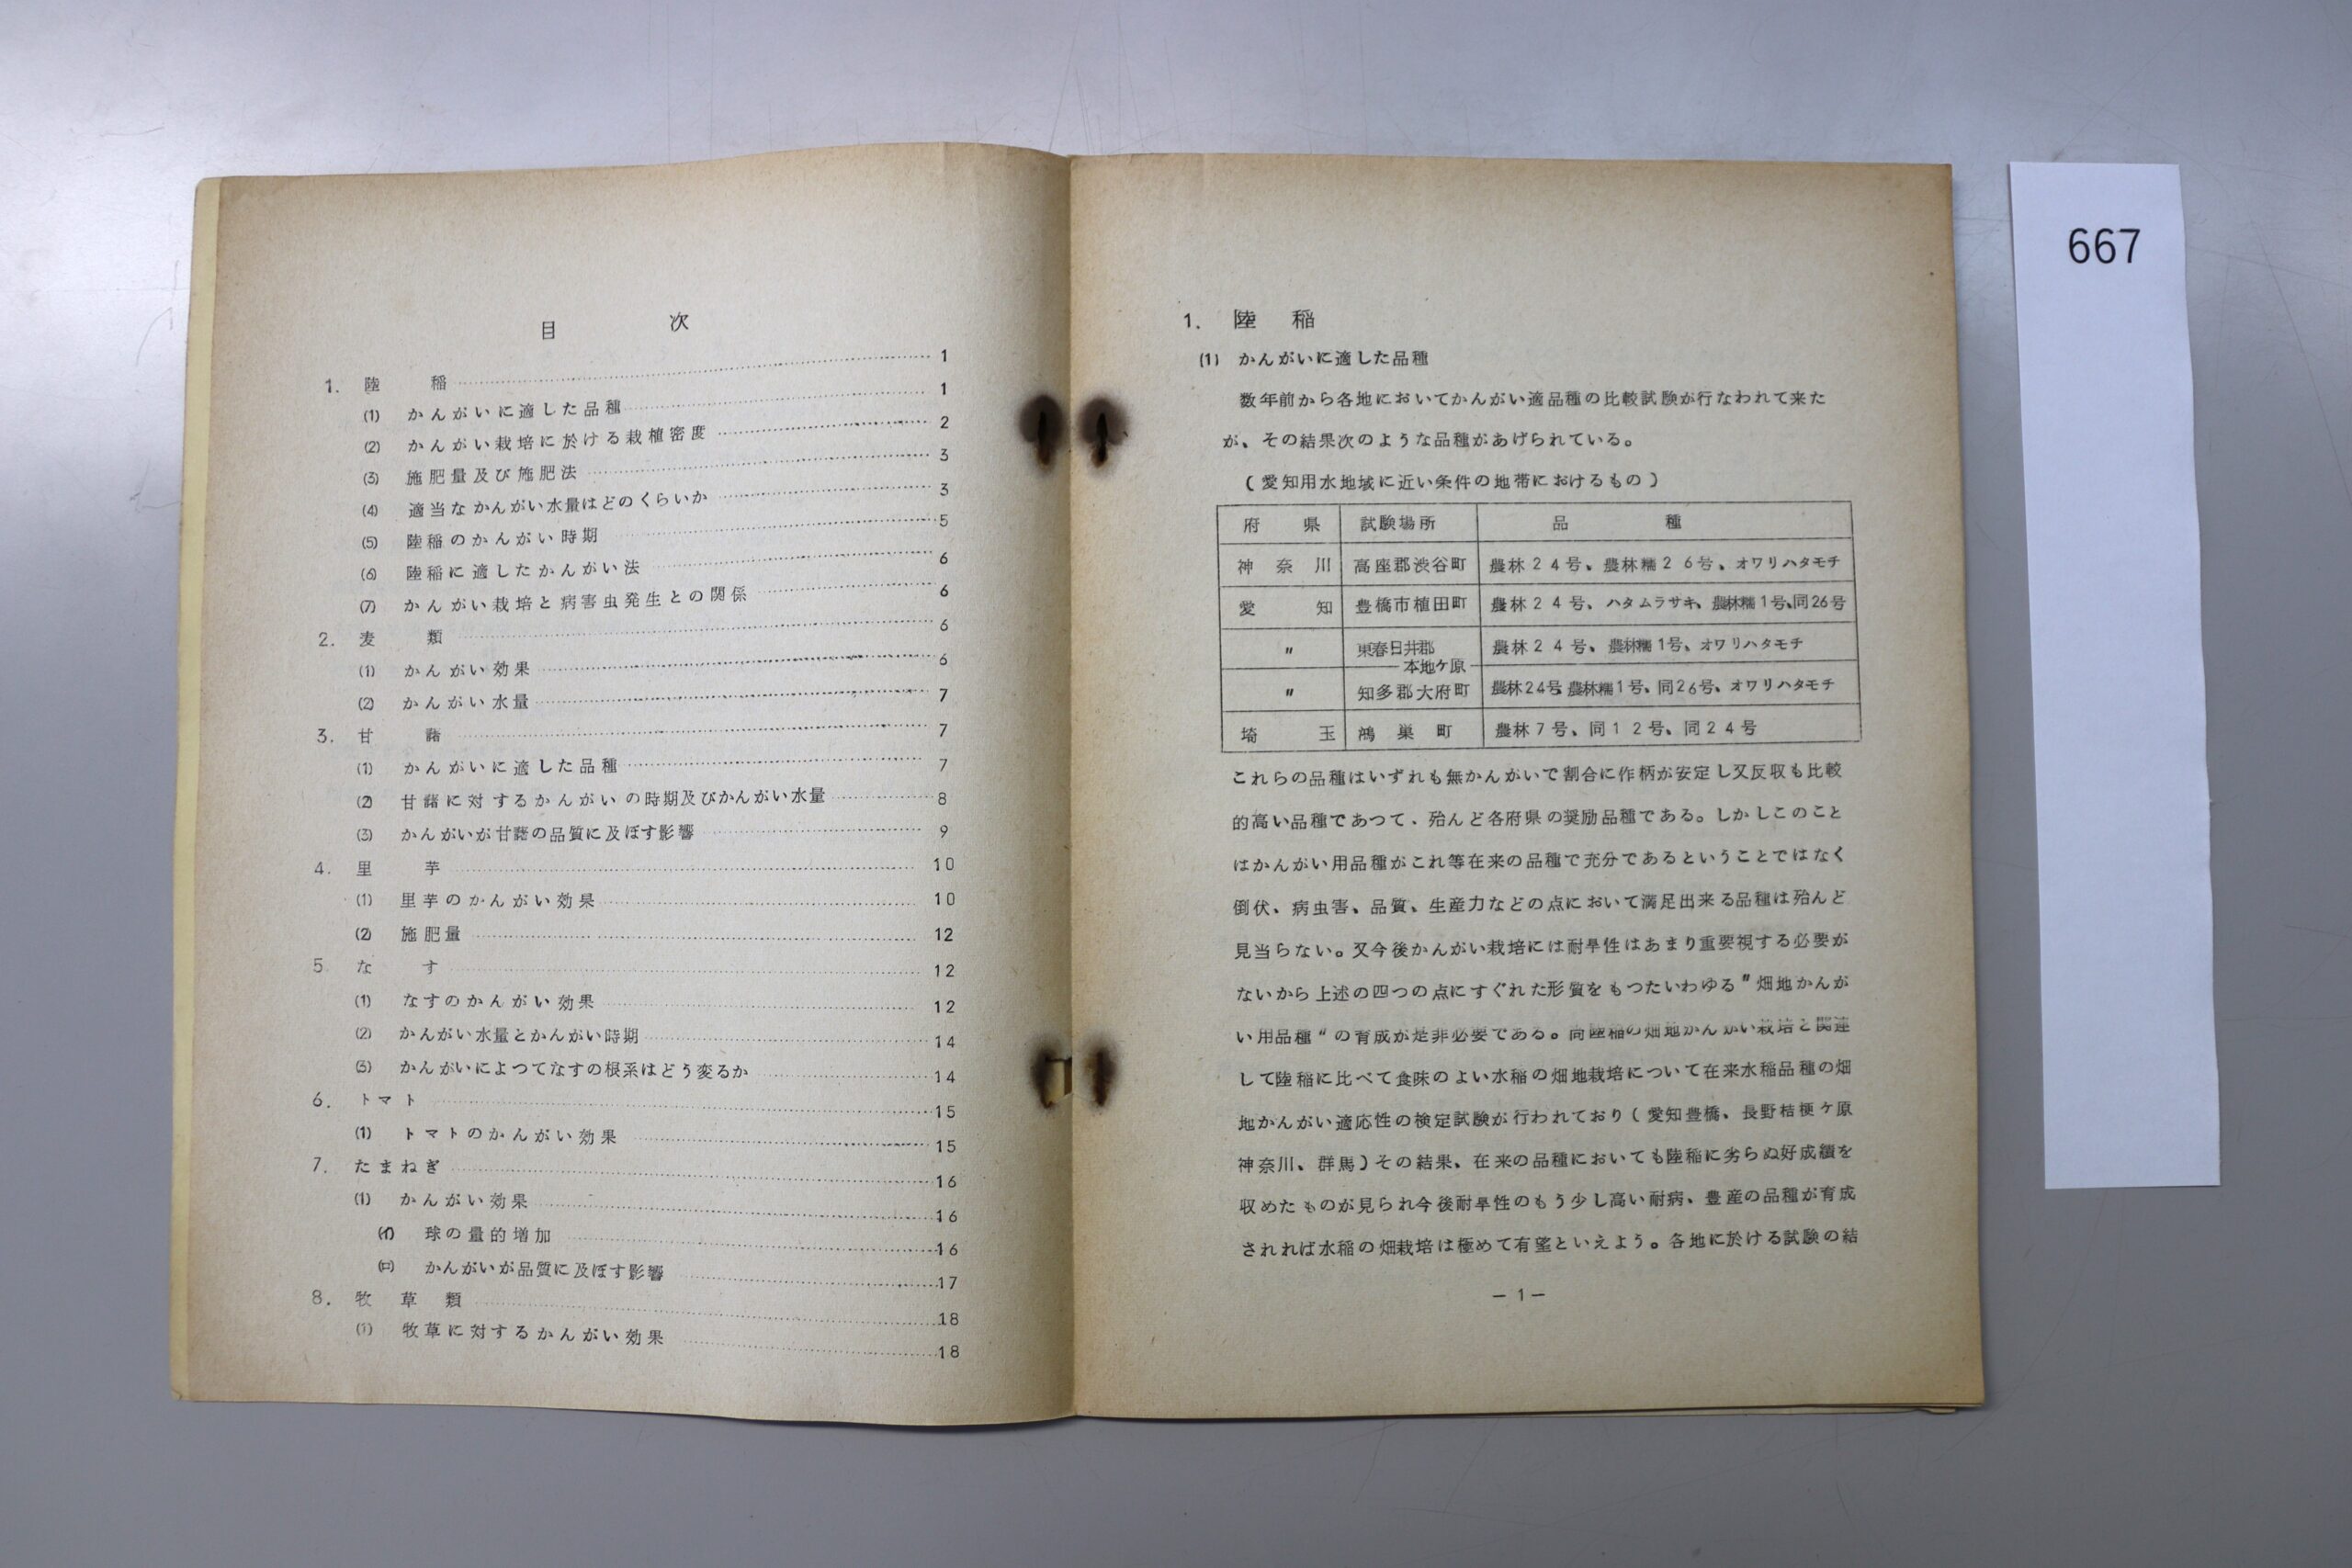 目 次
1. 陸 稲 …… 1
(1) かんがいに適した品種 …… 1
(2) かんがい栽培に於ける栽植密度 …… 2
(3) 施肥量及び施肥法 …… 3
(4) 適当なかんがい水量はどのくらいか …… 3
(5) 陸稲のかんがい時期 …… 5
(6) 陸稲に適したかんがい法 …… 6
(7) かんがい栽培と病害虫発生との関係 …… 6
2. 麦 類 …… 6
(1) かんがい効果 …… 6
(2) かんがい水量 …… 7
3. 甘 藷 …… 7
(1) かんがいに適した品種 …… 7
(2) 甘藷に対するかんがいの時期及びかんがい水量 …… 8
(3) かんがいが甘藷の品質に及ぼす影響 …… 9
4. 里 芋 …… 10
(1) 里芋のかんがい効果 …… 10
(2) 施肥量 …… 12
5 な す …… 12
(1) なすのかんがい効果 …… 12
(2) かんがい水量とかんがい時期 …… 14
(3) かんがいによつてなすの根系はどう変るか …… 14
6. トマト …… 15
(1) トマトのかんがい効果 …… 15
7. たまねぎ …… 16
(1) かんがい効果 …… 16
(イ) 球の量的増加 …… 16
(ロ) かんがいが品質に及ぼす影響 …… 17
8. 牧 草 類 …… 18
(1) 牧草に対するかんがい効果 …… 18
1. 陸 稲
(1) かんがいに適した品種
数年前から各地においてかんがい適品種の比較試験が行なわれて来た
が、その結果次のような品種があげられている。
(愛知用水地域に近い条件の地帯におけるもの)
府 県 試験場所 品 種
神奈川 高座郡渋谷町 農林24号、農林糯26号、オワリハタモチ
愛 知 豊橋市植田町 農林24号、ハタムラサキ、農林糯1号、同26号
〃 東春日井郡 本地ケ原 農林24号、農林糯1号、オワリハタモチ
〃 知多郡大府町 農林24号、農林糯1号、同26号、オワリハタモチ
埼 玉 鴻巣町 農林7号、同12号、同24号
これらの品種はいずれも無かんがいで割合に作柄が安定し又反収も比較
的高い品種であつて、殆んど各府県の奨励品種である。しかしこのこと
はかんがい用品種がこれ等在来の品種で充分であるということではなく
倒伏、病虫害、品質、生産力などの点において満足出来る品種は殆んど
見当らない。又今後かんがい栽培には耐旱性はあまり重要視する必要が
ないから上述の四つの点にすぐれた形質をもつたいわゆる〃畑地かんが
い用品種〃の育成が是非必要である。尚陸稲の畑地かんがい栽培と関連
して陸稲に比べて食味のよい水稲の畑地栽培について在来水稲品種の畑
地かんがい適応性の検定試験が行われており(愛知豊橋、長野桔梗ケ原
神奈川、群馬)その結果、在来の品種においても陸稲に劣らぬ好成績を
収めたものが見られ今後耐旱性のもう少し高い耐病、豊産の品種が育成
されれば水稲の畑栽培は極めて有望といえよう。各地に於ける試験の結
—1—
667